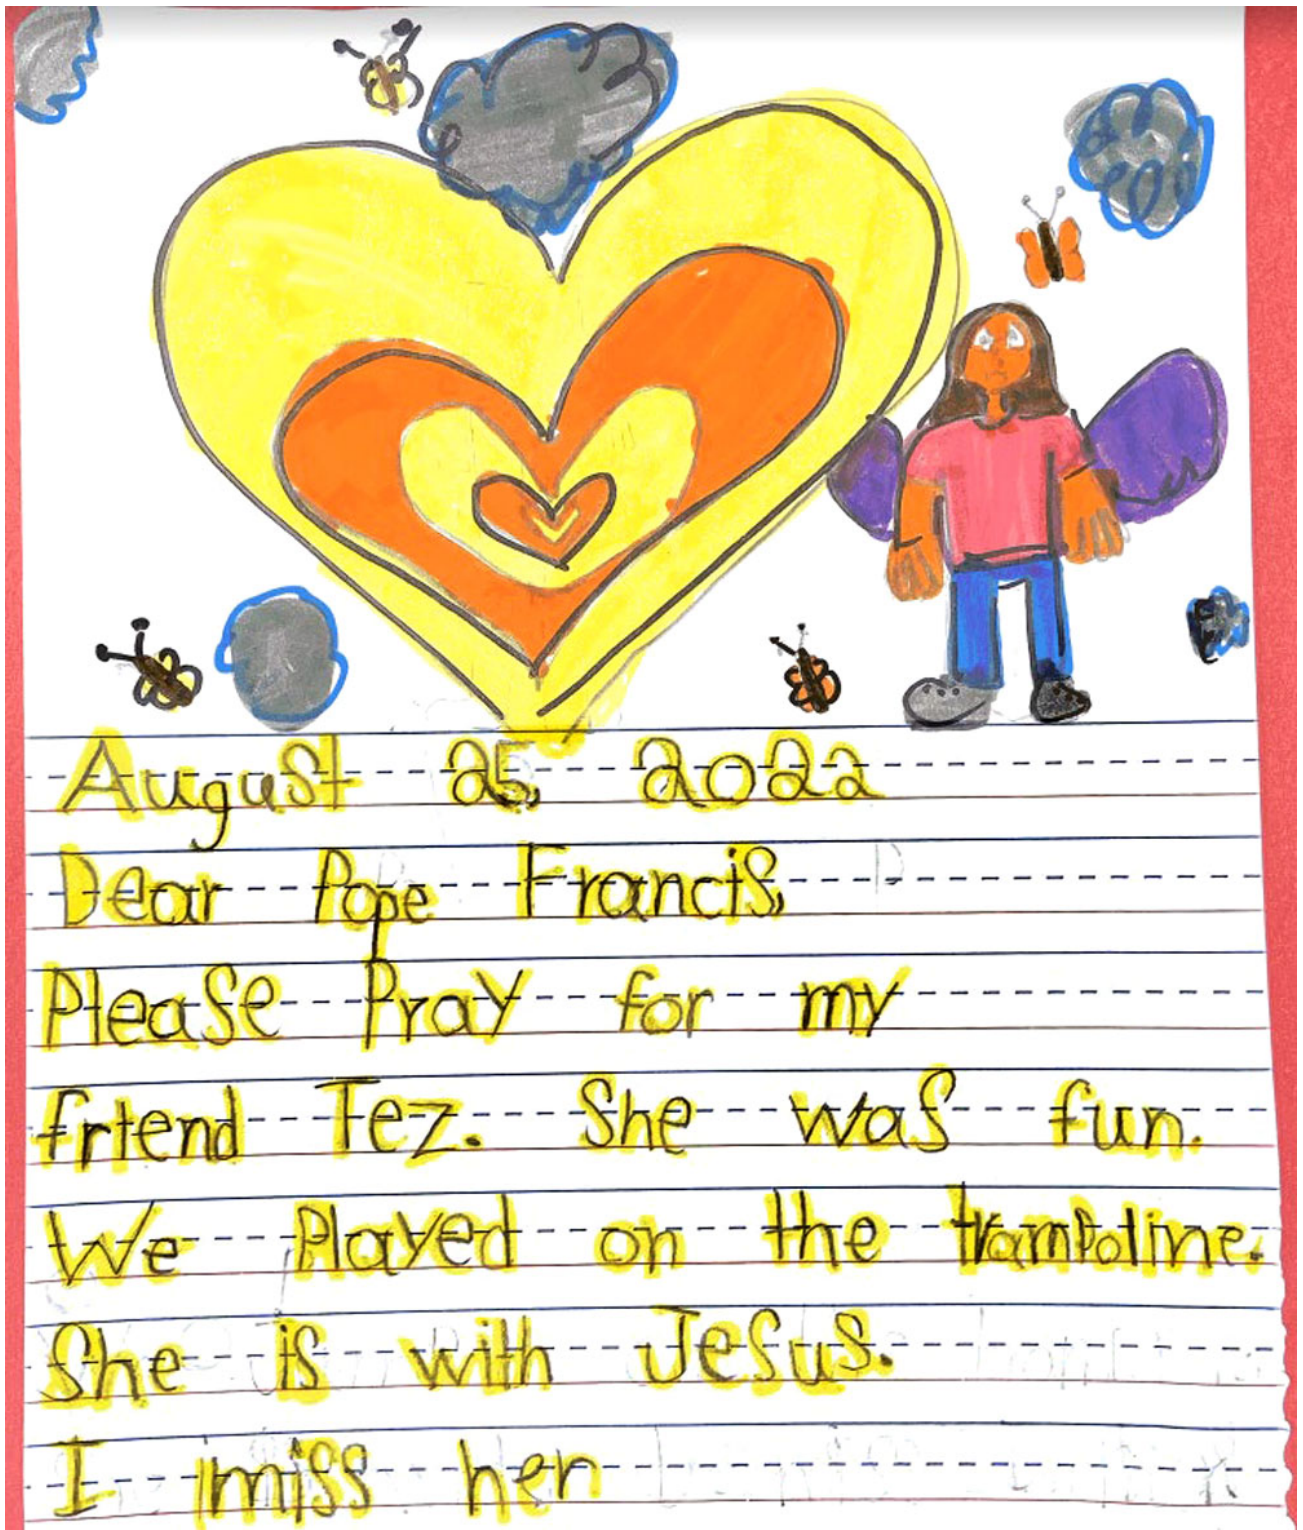 August 25, 2022
Dear Pope Francis,
Please Pray for my
friend Tez. She was fun.
We Played on the trampoline.
She is with Jesus.
I miss her